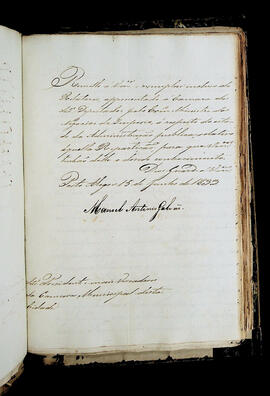 Remetto a Vm.ces o exemplar incluso do
Relatorio appresentado a Camara dos
S.res Deputados, pelo Ministro dos
Negocios do Imperio, a respeito do estado
da Administração publica, relativo
áquella Repartição, para que
tenhão delle o devido conhecimento.
Deos Guarde a Vm.ces
Porto Alegre 15 de Junho de 1832
Manuel Antonio Galvão
Presidente, e mais Vereadores
da Camara Municipal desta
Cidade.